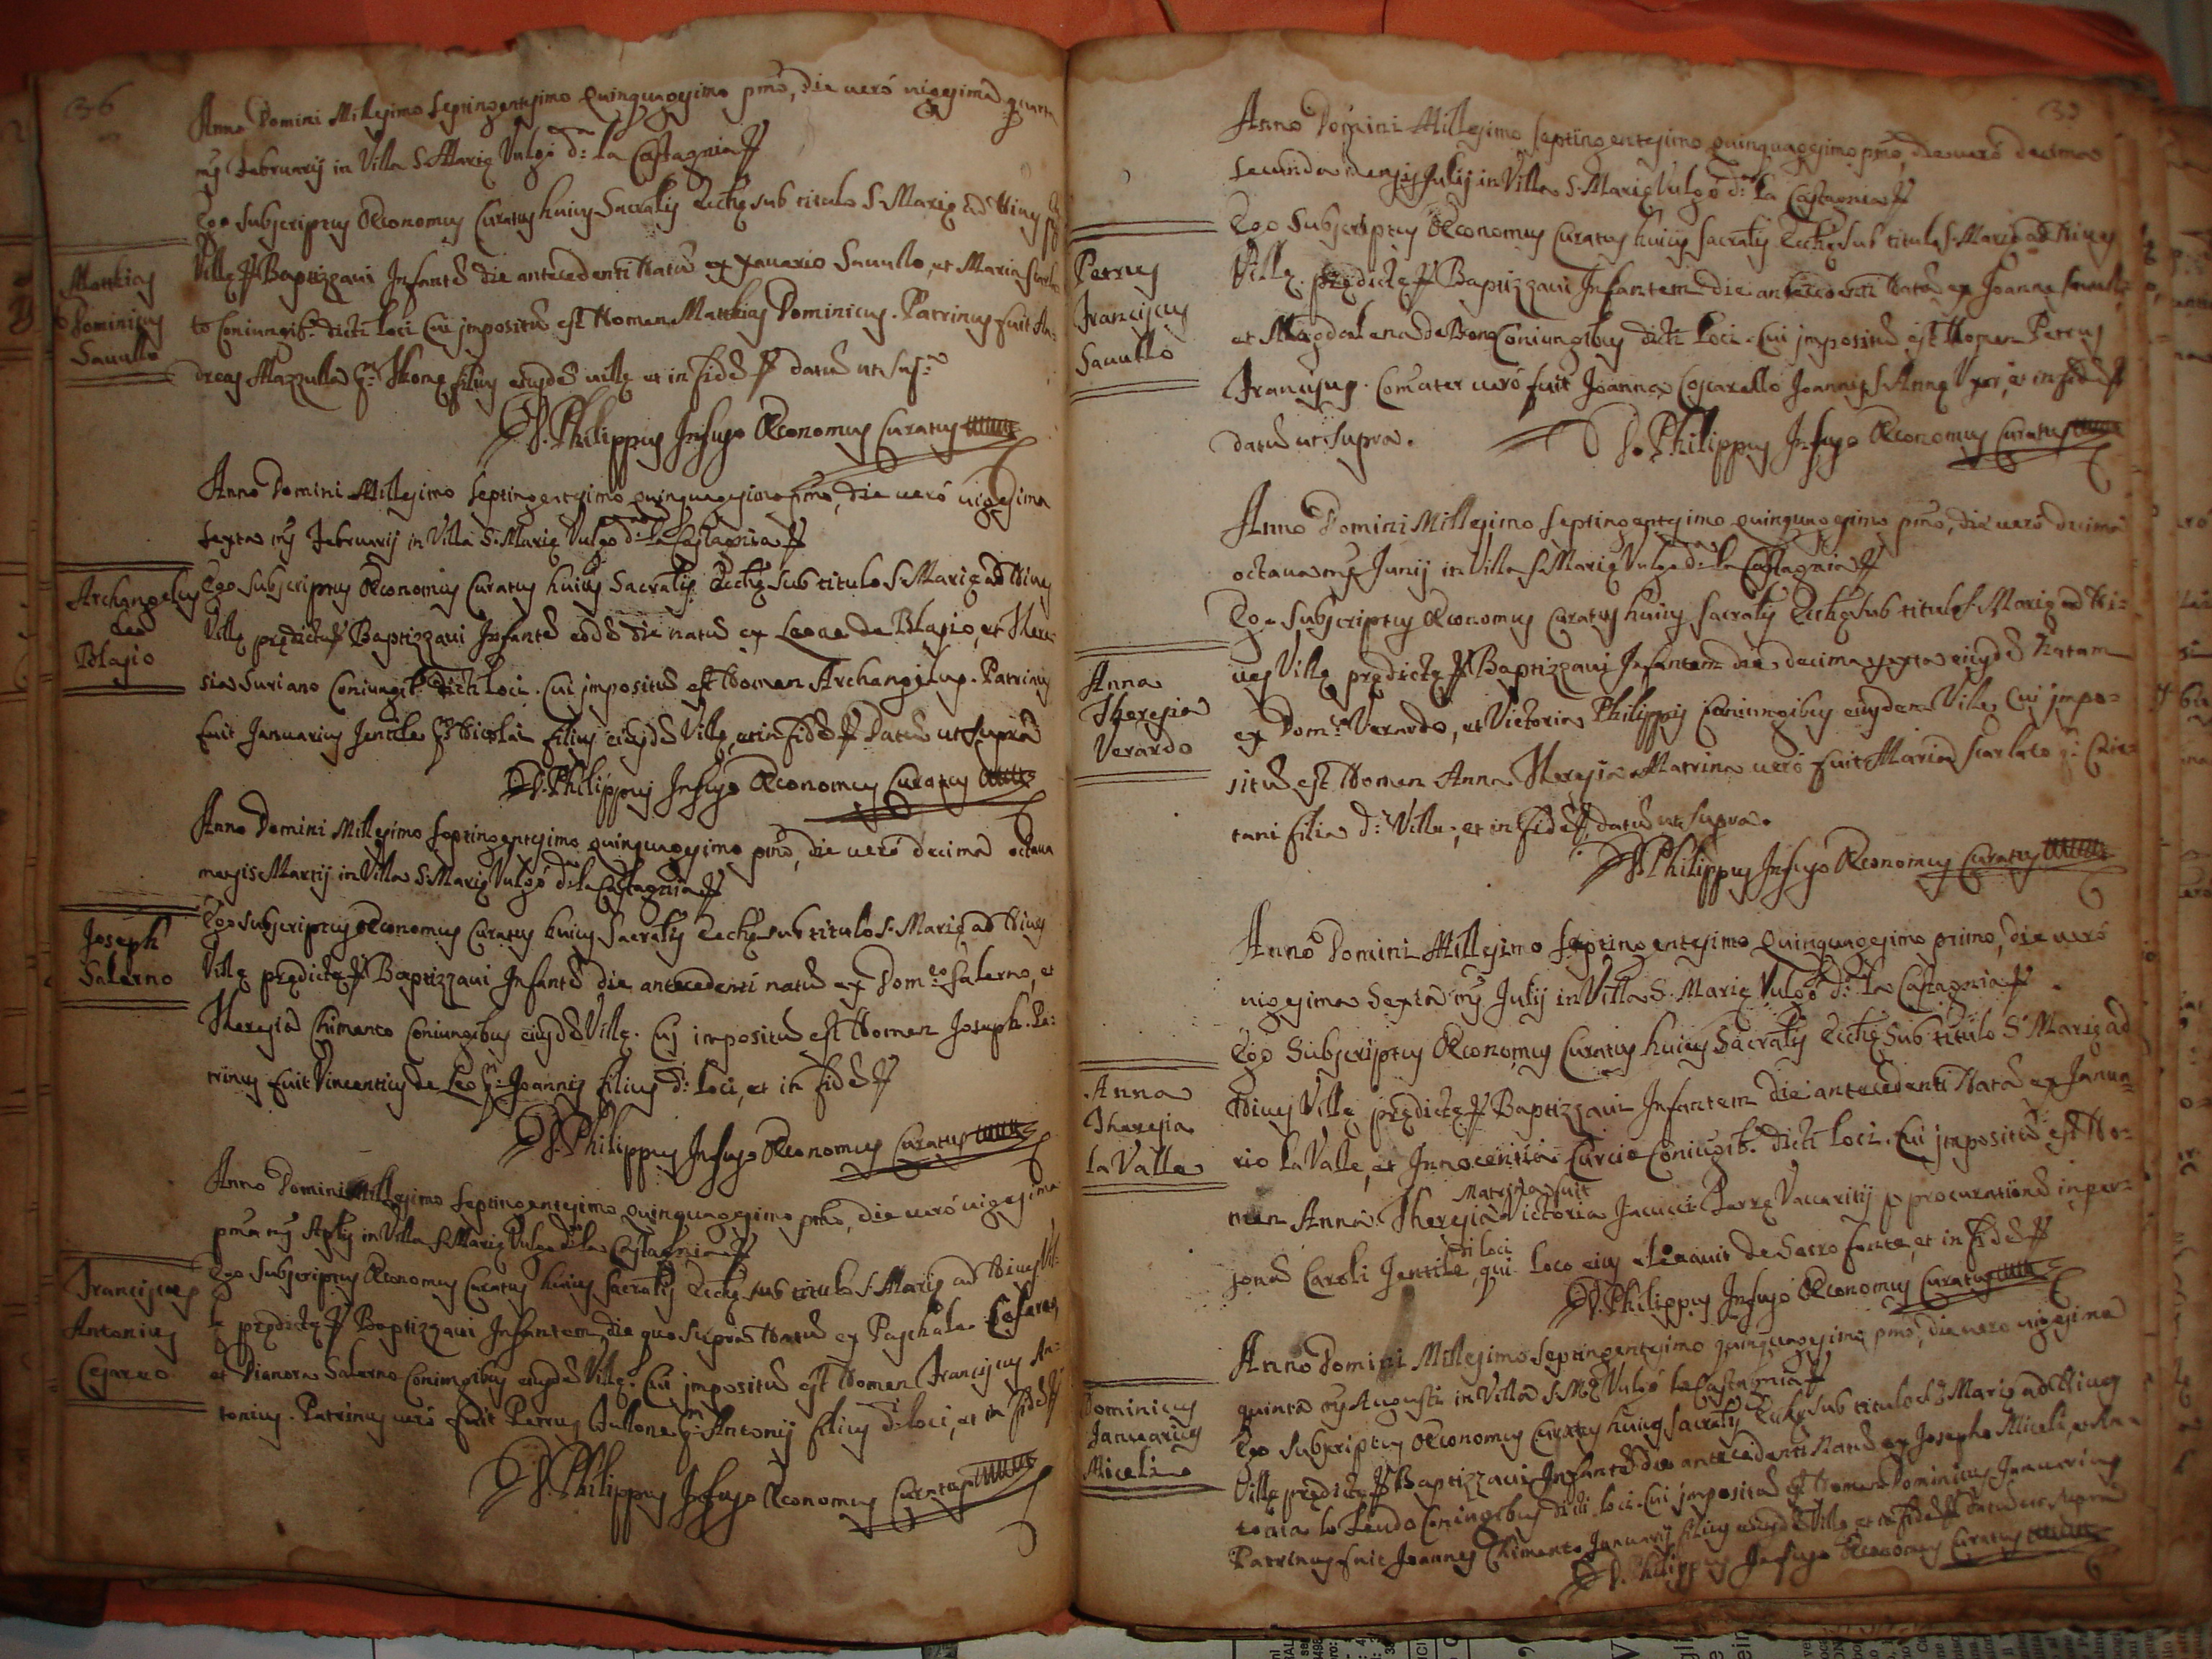 36
Anno Domini Millesimo Septingentesimo Quinquagesimo pmo, die uerò uigesima quarta
mẽs Februarij in Villa S. Marię Vulgò d:ta la Castagnia
Ego Subscriptus Œconomus Curatus huius Sacratis Eccłę sub titulo S. Marię ad Niues
Villę Baptizzaui Infantẽ die antecedenti Natũ ex Sauullo, et Maria
to Coniungib. dicti loci Cui impositũ est Nomen Matthias Dominicus. Patrinus fuit An-
dreas Mazzulla filius eiusdẽ uillę et in fidẽ datũ ut sup.a
D. Philippus Infugo Œconomus Curatus
Matthias
Dominicus
Sauullo
Anno Domini Millesimo Septingentesimo quinquagesimo pmo, die uerò uigesima
sexta mẽs Februarij in Villa S. Marię Vulgo d:ta la Castagnia
Ego Subscriptus Œconomus Curatus huius Sacratis Eccłę sub titulo S. Marię ad Niues
Villę prędictę Baptizzaui Infantẽ eodẽ die natũ ex Leone de Blasio, et There-
sia Suriano Coniungib. dicti loci. Cui impositũ est Nomen Archangelus. Patrinus
fuit Januarius Jentile Nicolai filius eiusdẽ Villę, et in fidẽ Datũ ut supra
D. Philippus Infugo Œconomus Curatus
Archangelus
de
Blasio
Anno Domini Millesimo Septingentesimo quinquagesimo pmo, die uerò decima octaua
mensis Martij in Villa S. Marię Vulgò d:ta la Castagnia
Ego subscriptus Œconomus Curatus huius Sacratis Eccłę sub titulo S. Marię ad Niues
Villę prędictę Baptizzaui Infantẽ die antecedenti natũ ex Dom:co Salerno, et
Theresia Chimento Coniungibus eiusdẽ Villę. Cui impositũ est Nomen Joseph. Pa-
trinus fuit Vincentius de Leo Joannis filius d:i loci, et in fidẽ
D. Philippus Infugo Œconomus Curatus
Joseph
Salerno
Anno Domini Millesimo Septingentesimo quinquagesimo pmo, die uerò uigesima
pma mẽs Aplis in Villa S. Marię Vulgo d:ta la Castagnia
Ego Subscriptus Œconomus Curatus huius Sacratis Eccłę sub titulo S. Marię ad Niues Vil-
lę prędictę Baptizzaui Infantem die quo supra Natũ ex Paschale Cesareo,
et Dianora Salerno Coniungibus eiusdẽ Villę. Cui impositũ est Nomen Franciscus An-
tonius. Patrinus uerò fuit Petrus Antonij filius d:i loci, et in fidẽ
D. Philippus Infugo Œconomus Curatus
Franciscus
Antonius
Cesareo
Anno Domini Millesimo Septingentesimo quinquagesimo pmo, die uerò decima
secunda mensis Julij in Villa S. Marię Vulgò d:ta la Castagnia
Ego Subscriptus Œconomus Curatus huius sacratis Eccłę sub titulo S. Marię ad Niues
Villę prędictę Baptizzaui Infantem die antecedenti Natũ ex Joanne Sauullo
et Magdalena de Bono Coniungibus dicti loci. Cui impositũ est Nomen Petrus
Franciscus. Comater uerò fuit Joanna Coscarello Joannis S. Anna Vxor, et in fidẽ
datũ ut supra.
D. Philippus Infugo Œconomus Curatus
Petrus
Franciscus
Sauullo
Anno Domini Millesimo Septingentesimo quinquagesimo pmo, die uerò decima
octaua mẽs Junij in Villa S. Marię Vulgo d:ta la Castagnia
Ego Subscriptus Œconomus Curatus huius sacratis Eccłę sub titulo S. Marię ad Ni-
ues Villę prędictę Baptizzaui Infantem die decima sexta eiusdẽ Natam
ex Dom:co Verardo, et Victoria Philippis Coniungibus eiusdem Villę Cui impo-
sitũ est Nomen Anna Theresia Matrina uerò fuit Maria Scarlato Cie-
tani filia d:ę Villę, et in fidẽ datũ ut supra.
D. Philippus Infugo Œconomus Curatus
Anna
Theresia
Verardo
Anno Domini Millesimo Septingentesimo Quinquagesimo primo, die uerò
uigesima Sexta mẽs Julij in Villa S. Marię Vulgò d:ta la Castagnia
Ego Subscriptus Œconomus Curatus huius Sacratis Eccłę sub titulo S. Marię ad
Niues Villę prędictę Baptizzaui Infantem die antecedenti Natã ex Janua-
rio la Valle, et Innocentia Curcio Coniugib. dicti loci. Cui impositũ est No-
men Anna Theresia Matrina fuit Victoria Jacucci Terrę Vaccaritij p procurationẽ in per-
sonã Caroli Jentile d:i loci, qui loco eius eleuauit de Sacro fonte, et in fidẽ
D. Philippus Infugo Œconomus Curatus
Anna
Theresia
la Valle
Anno Domini Millesimo Septingentesimo quinquagesimo pmo, die uero uigesima
quinta mẽs Augusti in Villa S. Mę Vulgò la Castagnia
Ego Subscriptus Œconomus Curatus huius sacratis Eccłę sub titulo S. Marię ad Niues
Villę prędictę Baptizzaui Infantẽ die antecedenti Natũ ex Josepho Miceli, et An-
tonia lo Feudo Coniungibus dicti loci. Cui impositũ est Nomen Dominicus Januarius
Patrinus fuit Joannes Chimento Januarij filius eiusdẽ Villę et in fidẽ datũ ut supra
D. Philippus Infugo Œconomus Curatus
Dominicus
Januarius
Miceli